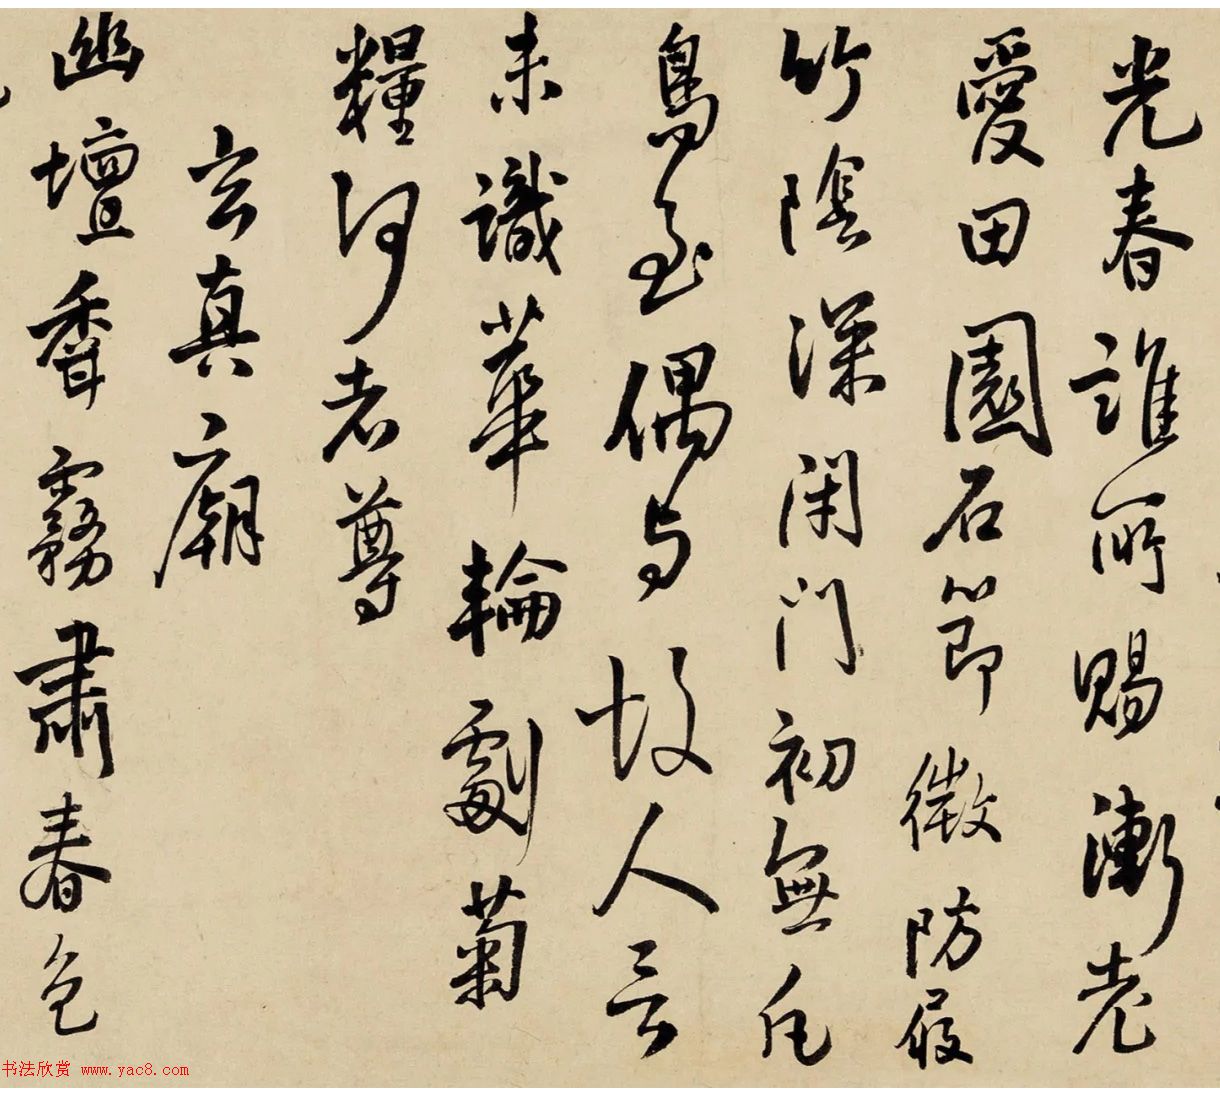 光春誰所賜漸老
愛田園石節微防屐
竹陰深閑門初無凡
鳥至偶与故人言
未識華輪劇菊
糧何老尊
玄真廟
幽壇香霧肅春色
书法欣赏 www.yac8.com